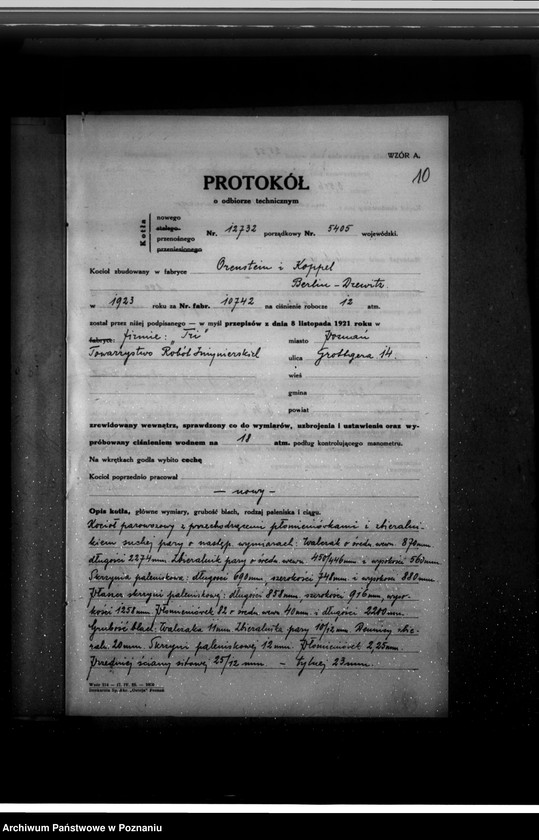 WZÓR A.
10
PROTOKÓŁ
o odbiorze technicznym
Kotła
nowego
stałego
przenośnego
przeniesionego
Nr. 12732 porządkowy Nr. 5405 wojewódzki.
Kocioł zbudowany w fabryce Orenstein i Koppel
Berlin - Drewitz
w 1923 roku za Nr. fabr. 10742 na ciśnienie robocze 12 atm.
został przez niżej podpisanego — w myśl przepisów z dnia 8 listopada 1921 roku w
fabryce: firmie: „Tri"
miasto Poznań
Towarzystwo Robót Inżynierskich
ulica Grottgera 14.
wieś
gmina
powiat
zrewidowany wewnątrz, sprawdzony co do wymiarów, uzbrojenia i ustawienia oraz wy-
próbowany ciśnieniem wodnem na 18 atm. podług kontrolującego manometru.
Na wkrętkach godła wybito cechę
Kocioł poprzednio pracował
— nowy —
Opis kotła, główne wymiary, grubość blach, rodzaj paleniska i ciągu.
Kocioł parowozowy z przechodzącemi płomieniówkami i zbieralni-
kiem suchej pary o następ. wymiarach: Walczak o średn. wewn. 870 mm
długości 2274 mm. Zbieralnik pary o średn. wewn. 450/446 mm i wysokości 560 mm.
Skrzynia paleniskowa: długości 690 mm, szerokości 748 mm i wysokości 880 mm.
Płaszcz skrzyni paleniskowej: długości 858 mm, szerokości 916 mm, wyso-
kości 1258 mm. Płomieniówek 82 o średn. wewn. 40 mm i długości 2280 mm.
Grubość blach: Walczaka 11 mm. Zbieralnika pary 10/12 mm Dennicy zbie-
raln. 20 mm. Skrzyni paleniskowej 12 mm. Płomieniówek 2,25 mm.
Przedniej ściany sitowej 25/12 mm — tylnej 23 mm.
Archiwum Państwowe w Poznaniu